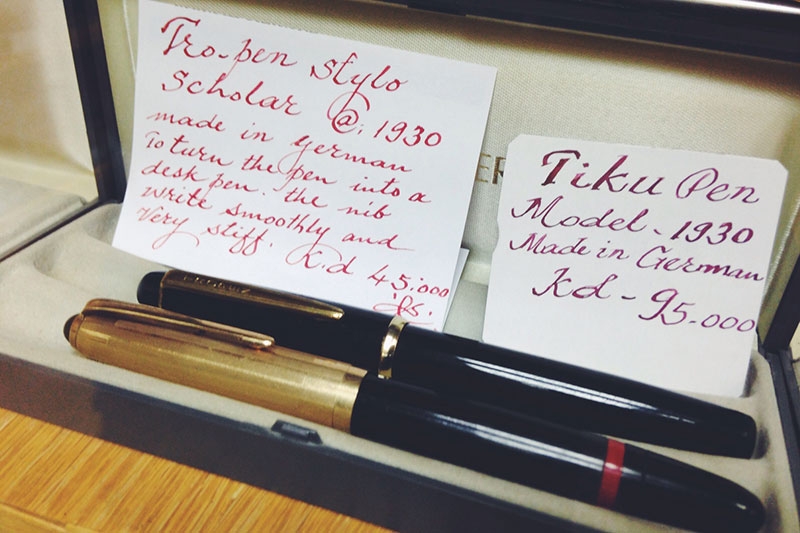 Tro-pen stylo
Scholar @; 1930
made in german
To turn the pen into a
desk pen. the nib
write smoothly and
very stiff. K.d 45.000
fs.
Tiku Pen
Model - 1930
Made in German
Kd - 95.000